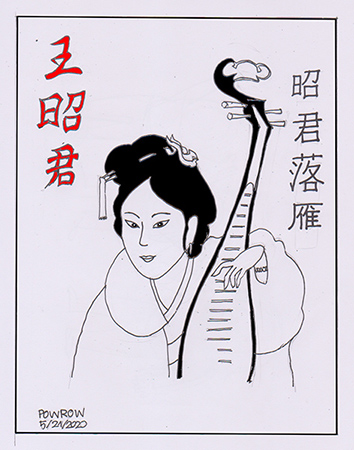 王昭君
昭君落雁
POWROW
5/21/2020